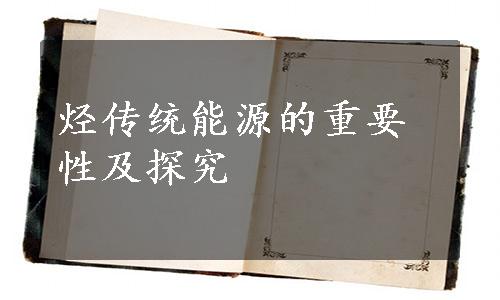 烃传统能源的重要
性及探究